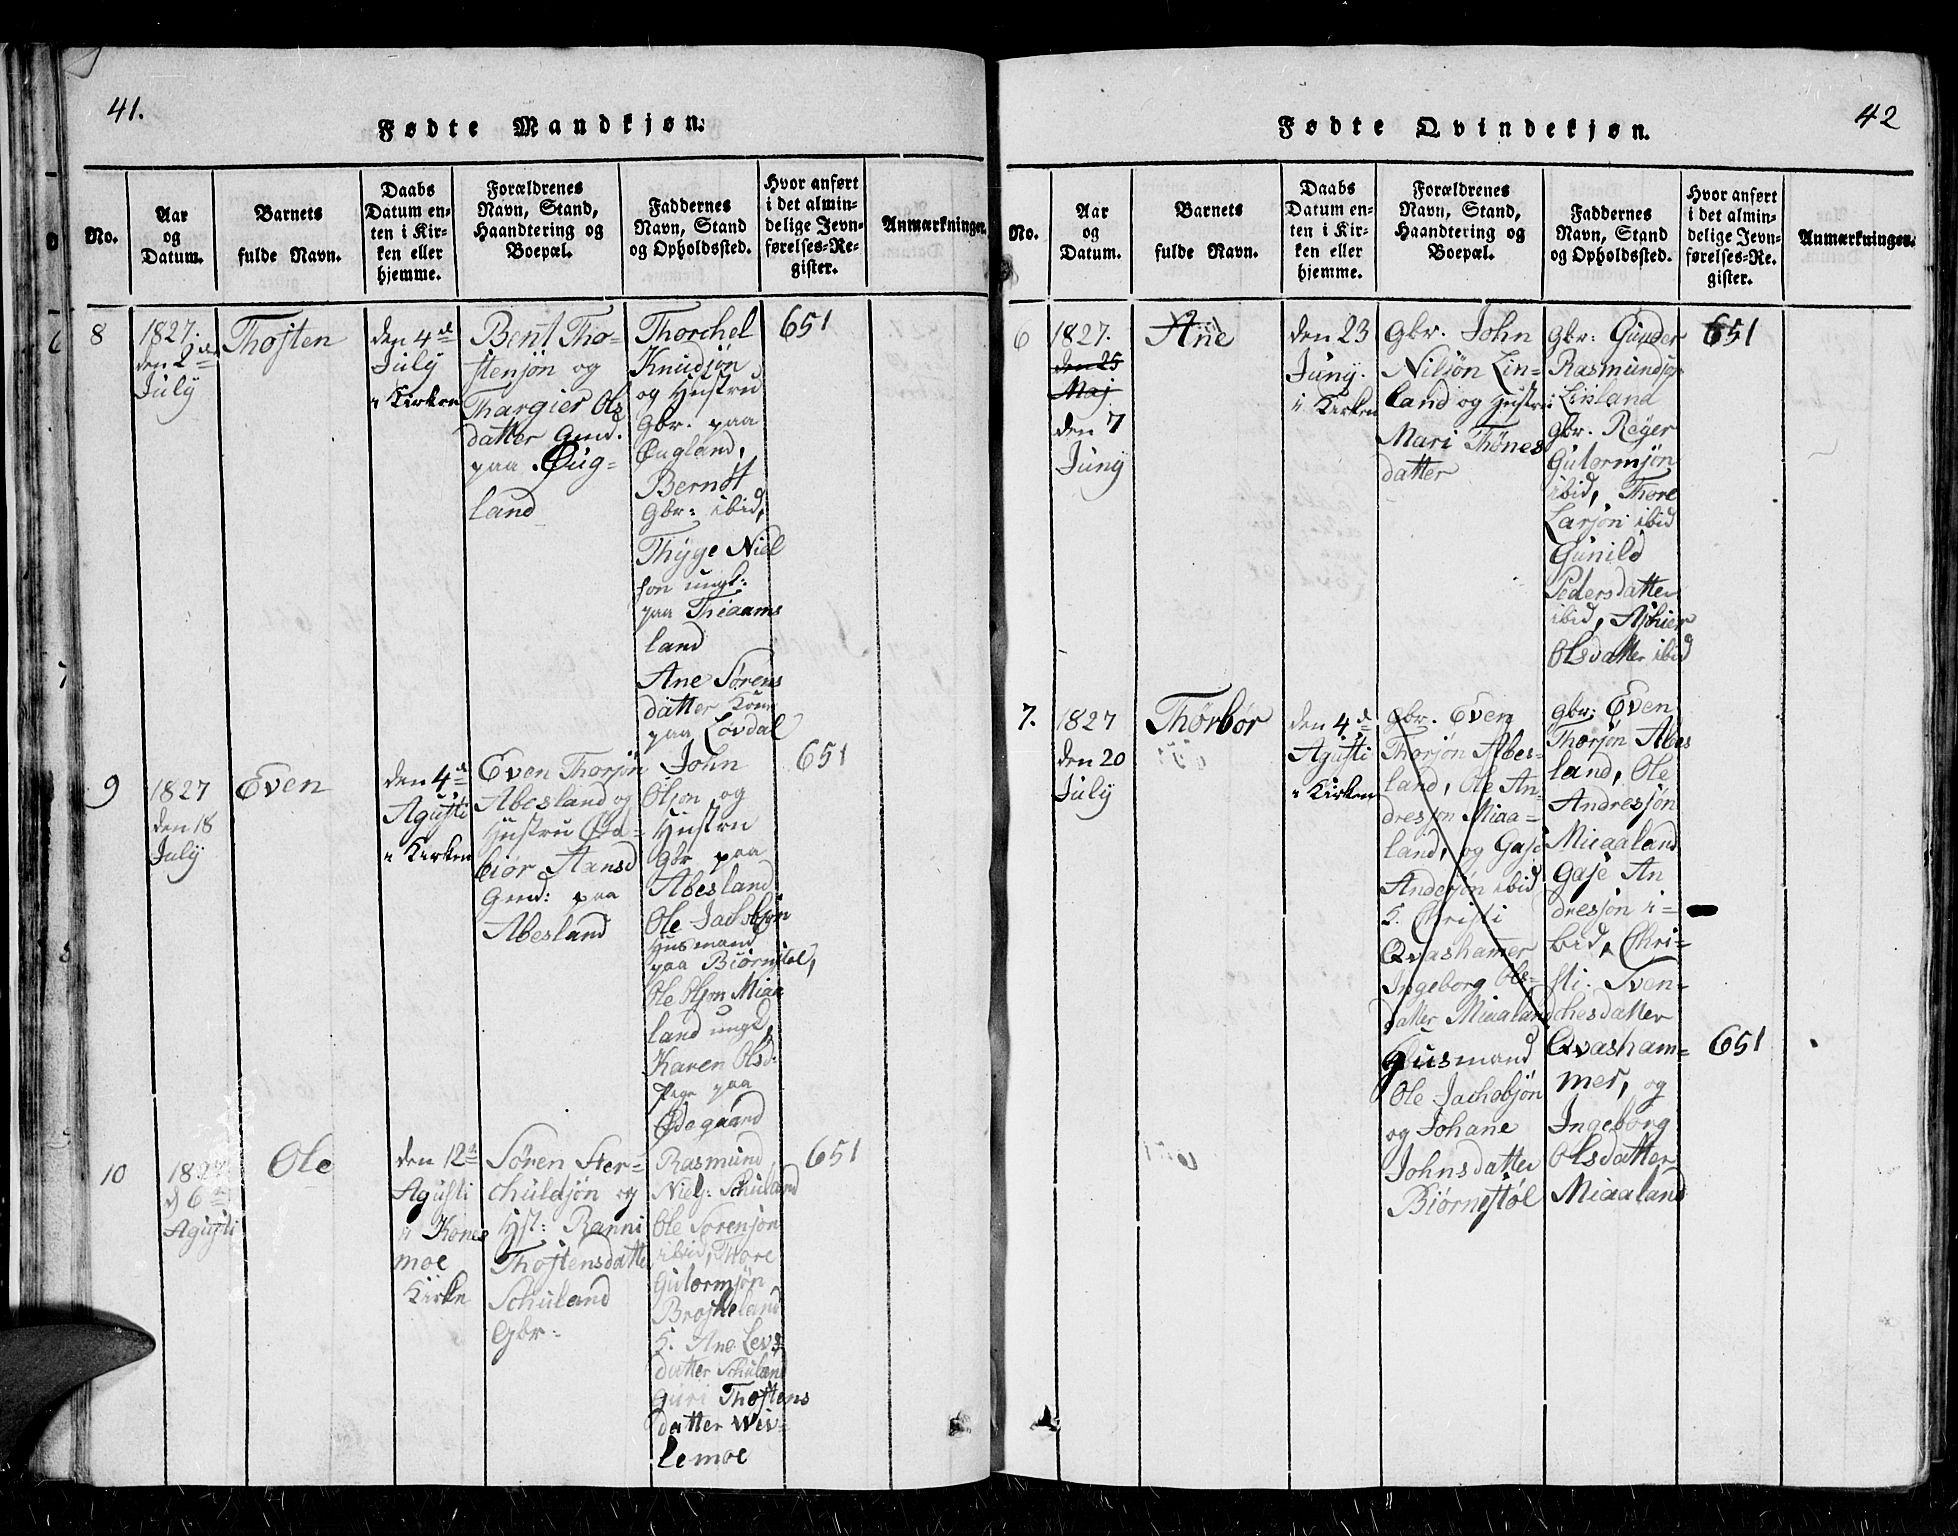 41.
Fødte Mandkjøn.
No.
Aar
og
Datum.
Barnets
fulde Navn.
Daabs
Datum en-
ten i Kir-
ken eller
hjemme.
Forældrenes
Navn, Stand,
Haandtering og
Boepæl.
Faddernes
Navn, Stand
og Opholdssted.
Hvor anført
i det almin-
delige Jevn-
førelses-Re-
gister.
Anmærkninger.
8
1827.
den 2de
July
Thosten
den 4de
July
i Kirken
Bent Tho-
stensøn og
Thargier Ols
datter Gmd.
paa Øug-
land
Thorchel
Knudsøn
og Hustru
Gbr. paa
Øugland,
Berndt
Gbr: ibid,
Thÿge Niel
son ungk:
paa Theaams
land
Ane Sørens
datter Kone
paa Løvdal
651
9
1827
den 18
July
Even
den 4de
Agusti
i Kirken
Even Thorsøn
Abesland og
Hustru Ød-
bior Aansd
Gmd: paa
Abesland
John
Olson og
Hustru
Gbr paa
Abesland
Ole Jachobsøn
Husmand
paa Biørnstøl,
Ole Olson Miaa
land ungk,
Karen Olsd.
Pege paa
Ødegaard
651
10
1827
d 6te
Agusti
Ole
den 12te
Agusti
i Kones
moe
Kirke
Søren Her-
chuldsøn og
Hst: Ranni
Thostensdatter
Schuland
Gbr:
Rasmund
Niels: Schuland
Ole Sorensøn
ibid, Thore
Gutormsøn
Brosheland
K. Ane Levs
datter Schuland
Guri Thostens
datter Wiv-
lemoe
651
42
Fødte Qvindekjøn.
No.
Aar
og
Datum.
Barnets
fulde Navn.
Daabs
Datum en-
ten i Kir-
ken eller
hjemme.
Forældrenes
Navn, Stand,
Haandtering og
Boepæl.
Faddernes
Navn, Stand
og Opholdssted.
Hvor anført
i det almin-
delige Jevn-
førelses-Re-
gister.
Anmærkninger.
6
1827.
den 25
Maj
den 7
Juny
Ane
den 23
Juny.
i Kirken
Gbr. John
Nilsøn Lin-
land og Hustru
Mari Thønes
datter
Gbr: Gunder
Rasmundsøn
Linland
Gbr. Reÿer
Gutormsøn
ibid, Thore
Larsøn ibid
Gunild
Pedersdatter
ibid, Ashier
Olsdatter ibid
651
7.
1827
den 20
July
Thørbør
den 4de
Agusti
i Kirken
Gbr. Even
Thorsøn Abes-
land, Ole An-
dresøn Miaa-
land, og Gase
Andersøn ibid
K. Christi
Qvashamer
Ingeborg Ols-
datter Miaaland
Husmand
Ole Jachobsøn
og Johane
Johnsdatter
Biørnestøl
Gbr: Even
Thorsøn Abes
land, Ole
Andresøn
Miaaland
Gase An
dresøn i-
bid, Chri-
sti. Sven-
chesdatter
Qvasham-
mer, og
Ingeborg
Olsdatter
Miaaland
651